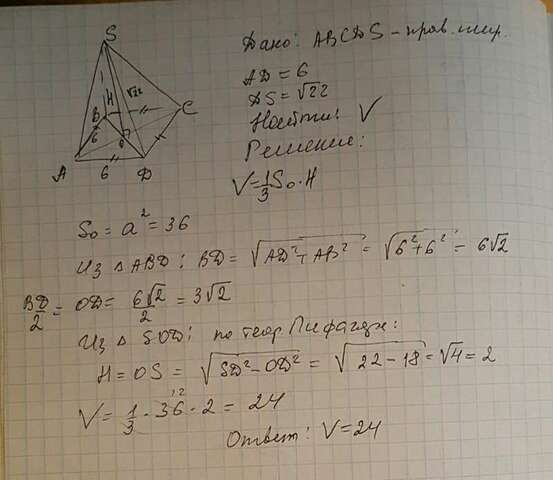 S
√22
B
H
C
6
O
A
6
D
Дано: ABCDS - прав. пир.
AD = 6
DS = √22
Найти: V
Решение:
V = 1/3 S₀ · H
S₀ = a² = 36
Из △ ABD: BD = √(AD² + AB²) = √(6² + 6²) = 6√2
BD/2 = OD = 6√2/2 = 3√2
Из △ SOD: по теор. Пифагора:
H = OS = √(SD² - OD²) = √(22 - 18) = √4 = 2
V = 1/3 · 36 · 2 = 24
12
Ответ: V = 24